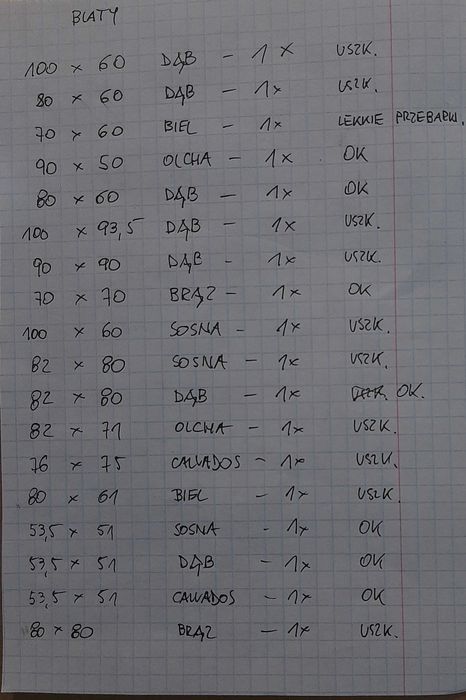 BLATY
100 x 60 DĄB - 1x USZK.
80 x 60 DĄB - 1x USZK.
70 x 60 BIEL - 1x LEKKIE PRZEBARW.
90 x 50 OLCHA - 1x OK
80 x 60 DĄB - 1x OK
100 x 93,5 DĄB - 1x USZK.
90 x 90 DĄB - 1x USZK.
70 x 70 BRĄZ - 1x OK
100 x 60 SOSNA - 1x USZK.
82 x 80 SOSNA - 1x USZK.
82 x 80 DĄB - 1x USZK. OK.
82 x 71 OLCHA - 1x USZK.
76 x 75 CALVADOS - 1x USZK.
80 x 61 BIEL - 1x USZK.
53,5 x 51 SOSNA - 1x OK
53,5 x 51 DĄB - 1x OK
53,5 x 51 CALVADOS - 1x OK
80 x 80 BRĄZ - 1x USZK.